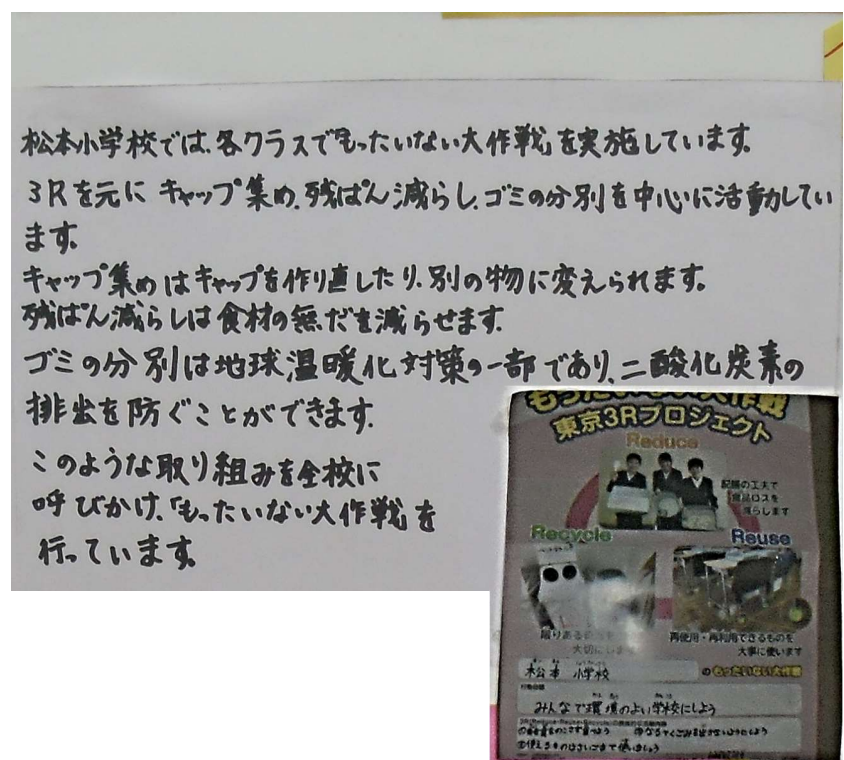 松本小学校では、各クラスで「もったいない大作戦」を実施しています。
3Rを元に キャップ集め、残ぱん減らし、ゴミの分別を中心に活動してい
ます。
キャップ集めはキャップを作り直したり、別の物に変えられます。
残ぱん減らしは食材の無だを減らせます。
ゴミの分別は地球温暖化対策の一部であり、二酸化炭素の
排出を防ぐことができます。
このような取り組みを全校に
呼びかけ、「もったいない大作戦」を
行っています。
もったいない大作戦
東京3Rプロジェクト
Reduce
配膳の工夫で
食品ロスを
減らします
Recycle
Reuse
限りある
大切にします
再使用・再利用できるものを
大事に使います
松本 小学校
のもったいない大作戦
みんなで環境のよい学校にしよう